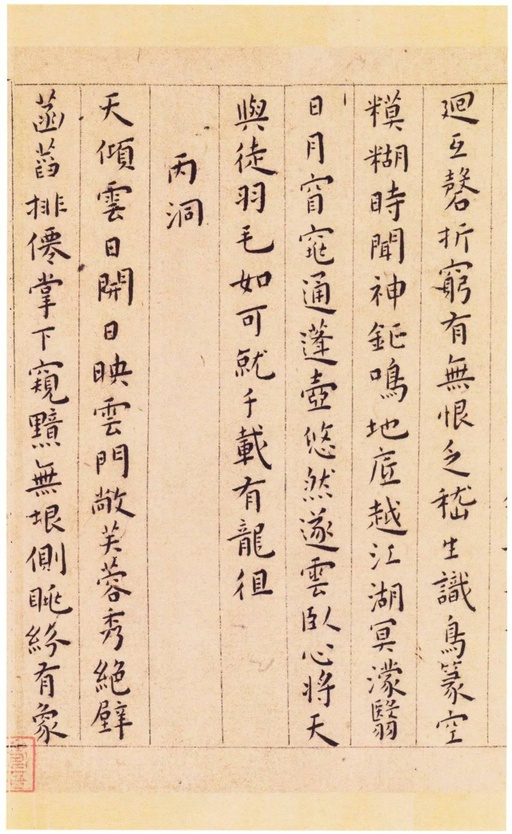 迴互磬折窮有無恨乏嵇生識鳥篆空
糢糊時聞神鉅鳴地底越江湖冥濛翳
日月窅窕通蓬壺悠然遂雲臥心將天
與徒羽毛如可就千載有龍徂
丙洞
天傾雲日開日映雲門敞芙蓉秀絕壁
菡萏排僊掌下窺黯無垠側眺紛有象